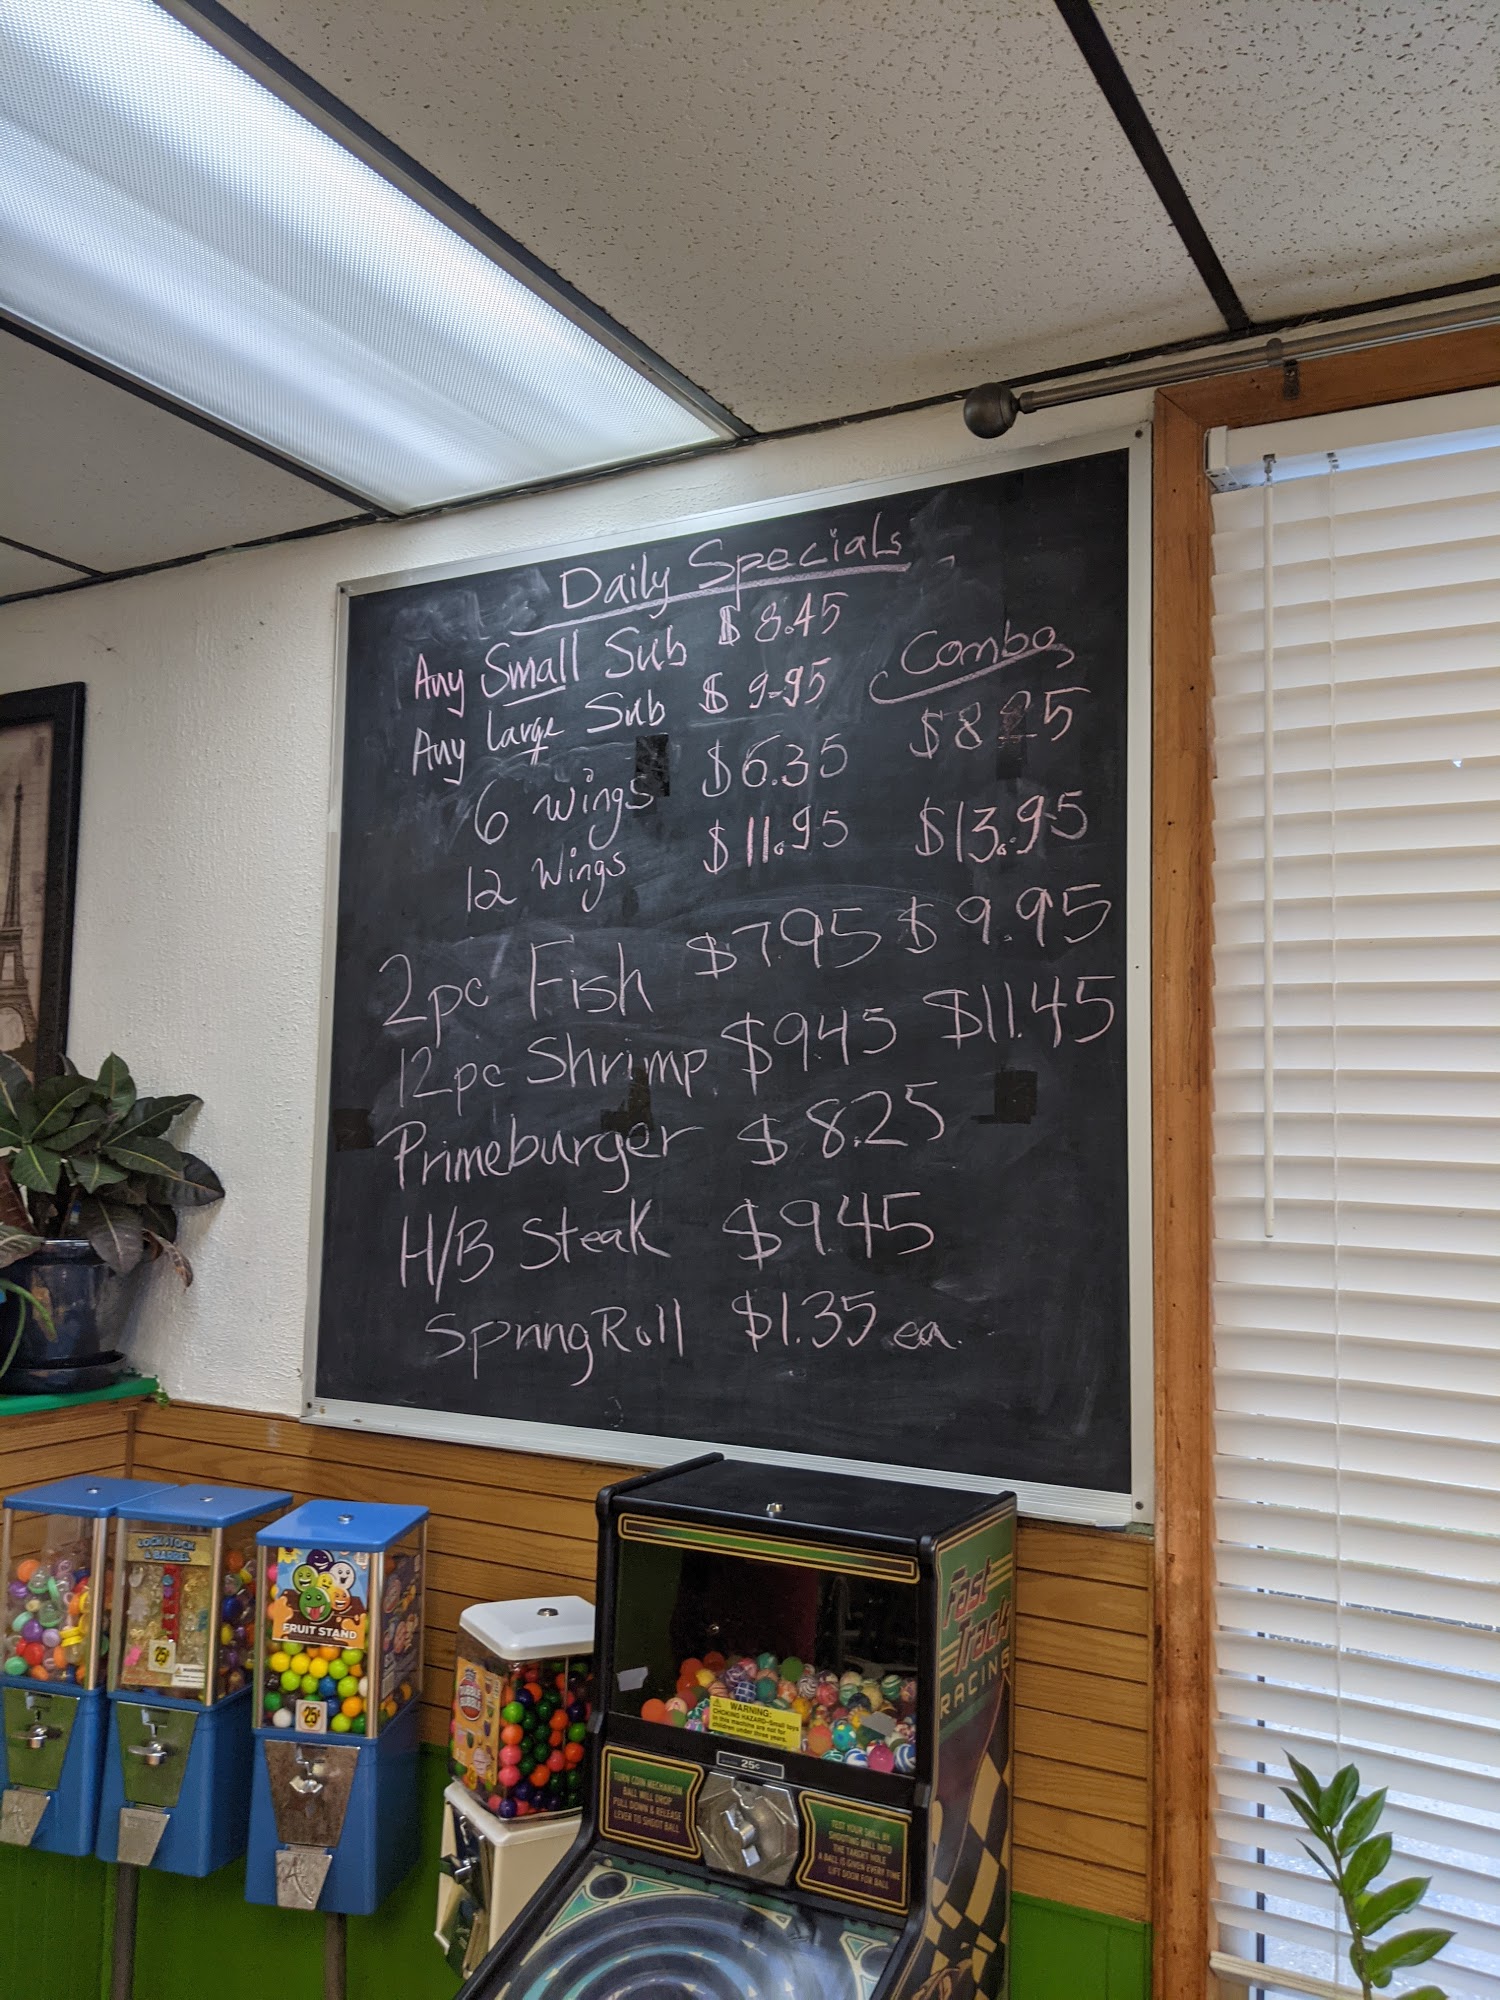 Daily Specials
Any Small Sub $8.45
Combo
Any large Sub $9.95
6 wings $6.35 $8.25
12 wings $11.95 $13.95
2pc Fish $7.95 $9.95
12pc Shrimp $9.45 $11.45
Primeburger $8.25
H/B Steak $9.45
Spring Roll $1.35 ea.
LOCK STOCK
& BARREL
25¢
FRUIT STAND
25¢
WARNING:
CHOKING HAZARD-Small toys
in this machine are not for
children under three years.
25¢
TURN COIN MECHANISM
BALL WILL DROP
PULL DOWN & RELEASE
LEVER TO SHOOT BALL
TEST YOUR SKILL BY
SHOOTING BALL INTO
THE TARGET HOLE
A BALL IS GIVEN EVERY TIME
LIFT DOOR FOR BALL
Fast
Track
RACING